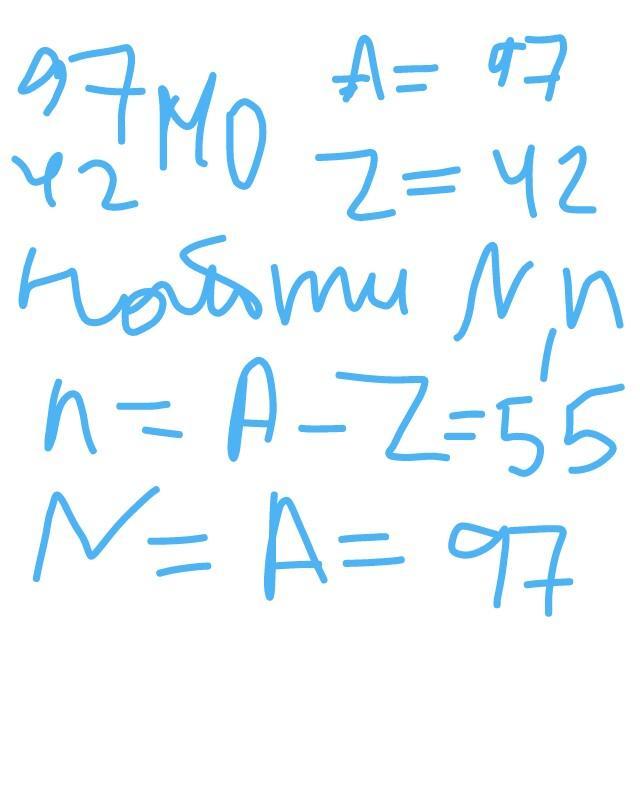 97 Mo A = 97
42 Z = 42
Найти N, n
n = A - Z = 55
N = A = 97